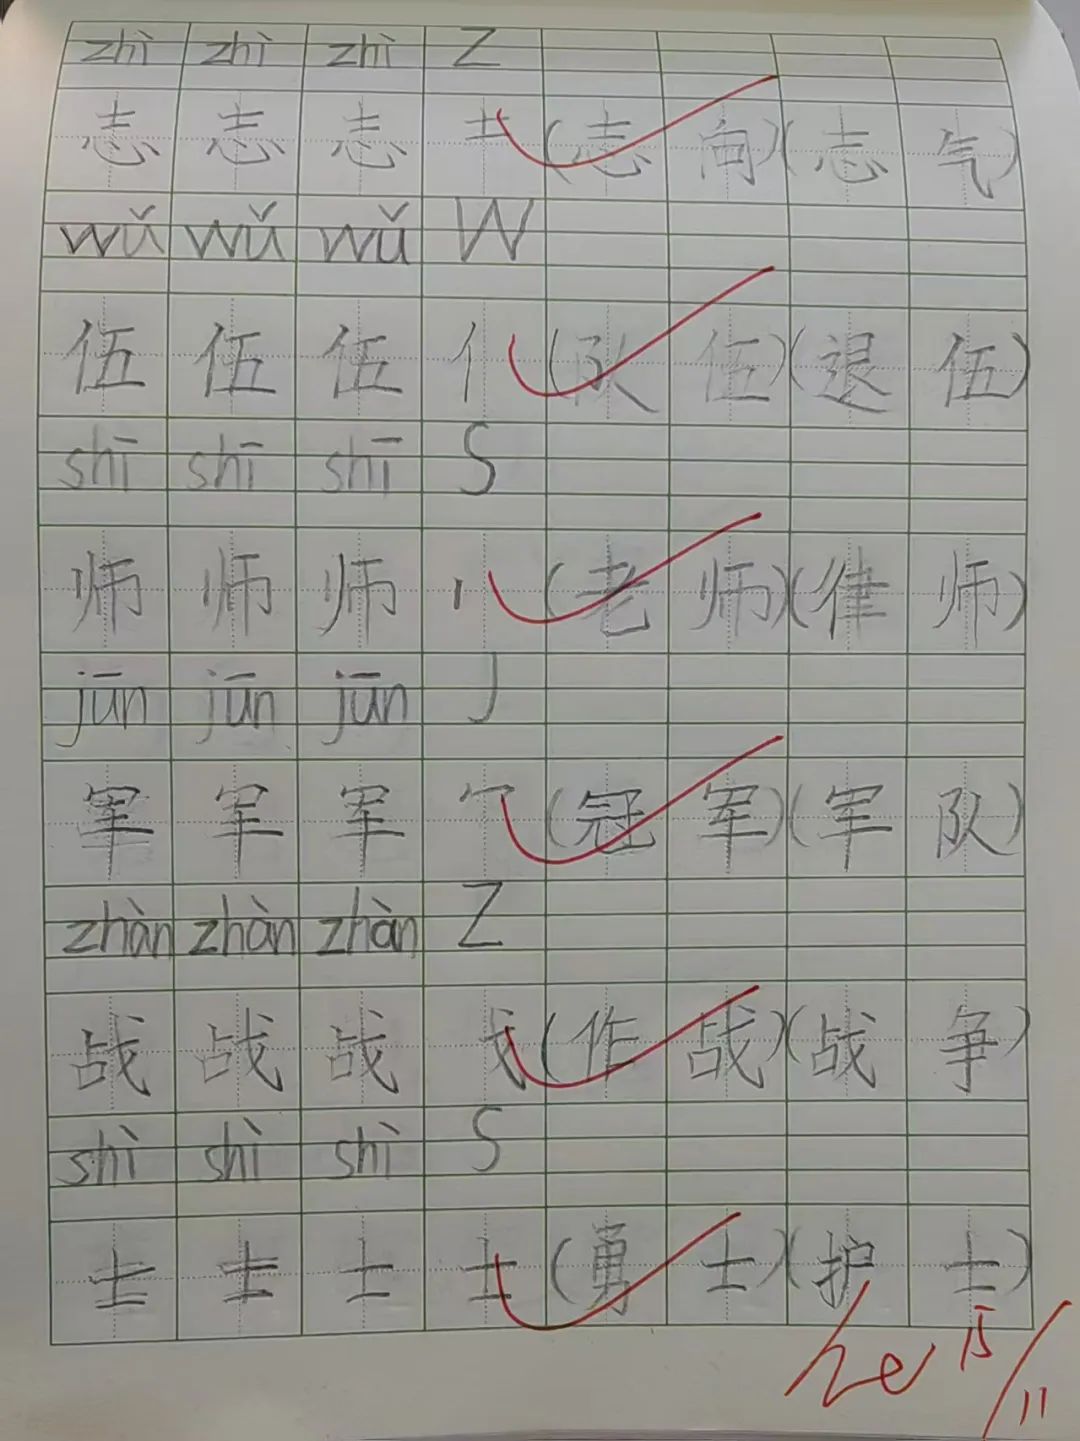 zhì zhì zhì Z
志 志 志 士 (志 向) (志 气)
wǔ wǔ wǔ W
伍 伍 伍 亻 (队 伍) (退 伍)
shī shī shī S
师 师 师 (老 师) (律 师)
jūn jūn jūn J
军 军 军 冖 (冠 军) (军 队)
zhàn zhàn zhàn Z
战 战 战 戈 (作 战) (战 争)
shì shì shì S
士 士 士 士 (勇 士) (护 士)
15/11